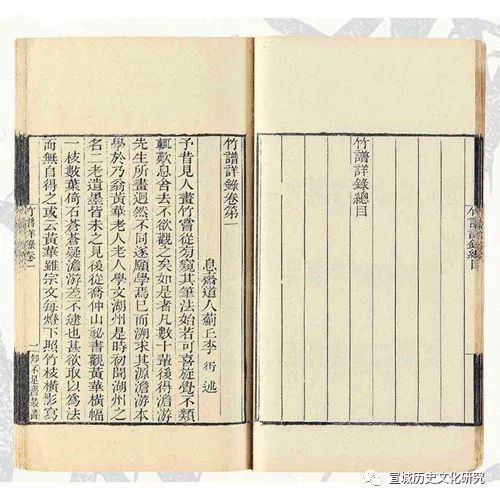 竹譜詳錄總目
竹譜詳錄總目
竹譜詳錄卷第一
息齋道人薊丘李衎述
予昔見人畫竹嘗從旁窺其筆法始若可喜旋覺不類
輒歎息舍去不欲觀之矣如是者凡數十輩後得澹游
先生所畫迥然不同遂願學焉已而溯求其源澹游本
學於乃翁黃華老人老人學文湖州是時初聞湖州之
名二老遺墨皆未之見後從喬仲山祕書觀黃華橫幅
一枝數葉倚石蒼蒼疑澹游差不逮也甚欲取以為法
而無自得之或云黃華雖宗文每燈下照竹枝橫影寫
竹譜詳錄卷一
一
知不足齋叢書
宣城历史文化研究